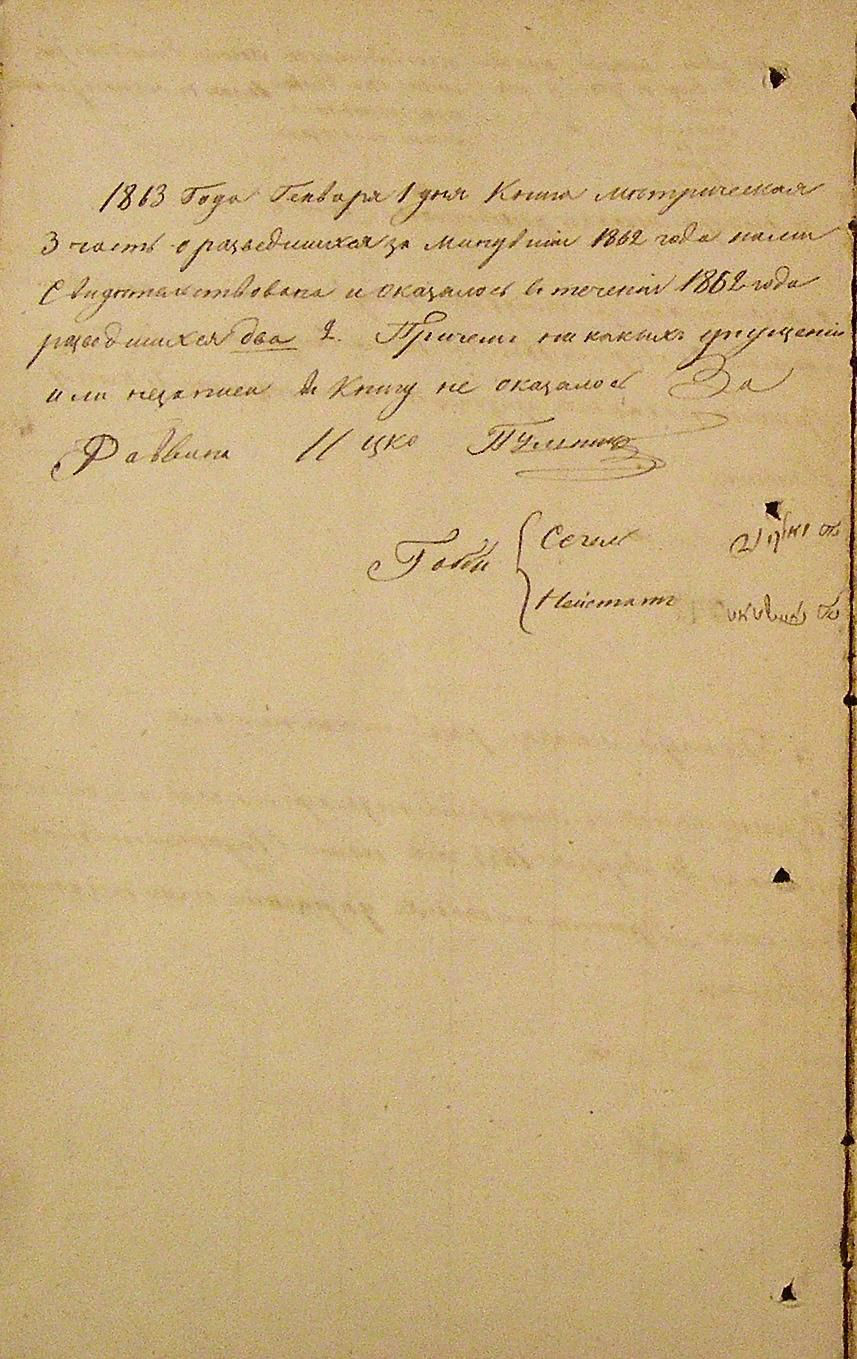 1863 Года Генваря 1 дня Книга метрическая
3 часть о разведшихся за минувший 1862 года нами
Свидетельствована и оказалось в течении 1862 года
разведшихся два 2. Причем никакихъ упущений
или незаписи в Книгу не оказалось За
Раввина Ицко
Габеи
Сегал
Нейстатъ